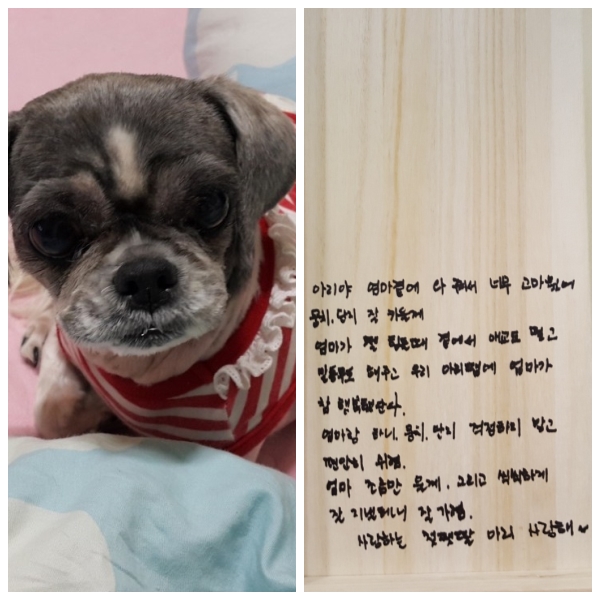 아리야 엄마곁에 와 줘서 너무 고마웠어
뭉치, 단지 잘 키울게
엄마가 젤 힘들때 곁에서 애교도 떨고
해주고 우리 아리땜에 엄마가
참 행복했단다.
엄마랑 하니, 뭉치, 단지 걱정하지 말고
편안히 쉬렴.
엄마 조금만 울게. 그리고 씩씩하게
잘 지낼테니 잘 가렴.
사랑하는 아리 사랑해